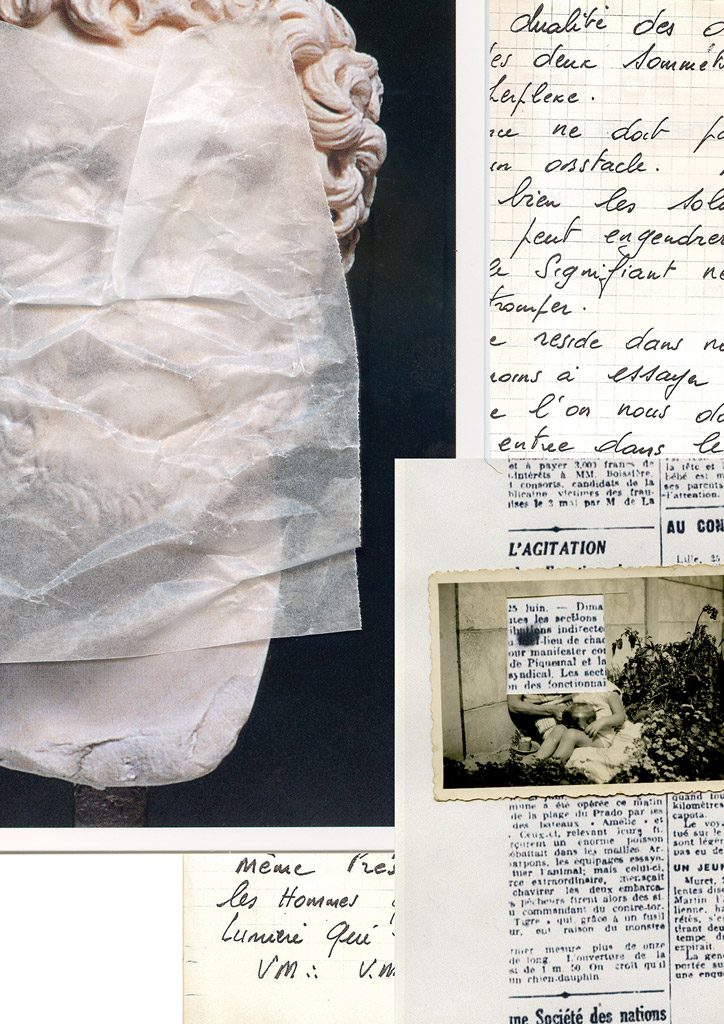 dualité des
es deux sommets
perplexe.
ne doit
obstacle.
bien les
peut engendrer
Signifiant ne
tromper.
reside dans
à essayer
l'on nous
entre dans le
et à payer 3,000 francs de
-intérêts à MM. Boissière,
consorts, candidats de la
blicaine, victimes des frau-
ises le 3 mai par M de La
L'AGITATION
la tête et
bébé est m
ses parents
l'attention.
AU CON
Lille, 25
25 Juin. — Dima
ntes les sections
ributions indirecte
ef-lieu de chac
our manifester co
de Piquenal et la
syndical. Les secti
n des fonctionnai
mune a été opérée ce matin
de la plage du Prado par les
des bateaux « Amélie » et
Ceux-ci, relevant leurs fi-
rçurent un énorme poisson
ébattait dans les mailles. Ar-
arpons, les équipages essayè-
tuer l'animal; mais celui-ci,
rce extraordinaire, menaçait
chavirer les deux embarca-
s pêcheurs firent alors des si-
u commandant du contre-tor-
Tigre » qui, grâce à un fusil
ur, eut raison du monstre
rnier mesure plus de onze
de long. L'ouverture de la
st de 1 m. 50 On croit qu'il
un chien-dauphin
une Société des nations
quand tou
kilomètres
capota.
Le voy
tué sur le
sont légèr
pas eu de
UN JEUN
Muret,
lentes disc
Martin l'a
lienne, ha
rétés, s'e
tirant deu
tempe du
expirait.
La gen
portée su
une enqu
Même
les Hommes
Lumière Qui
VM∴ V.M